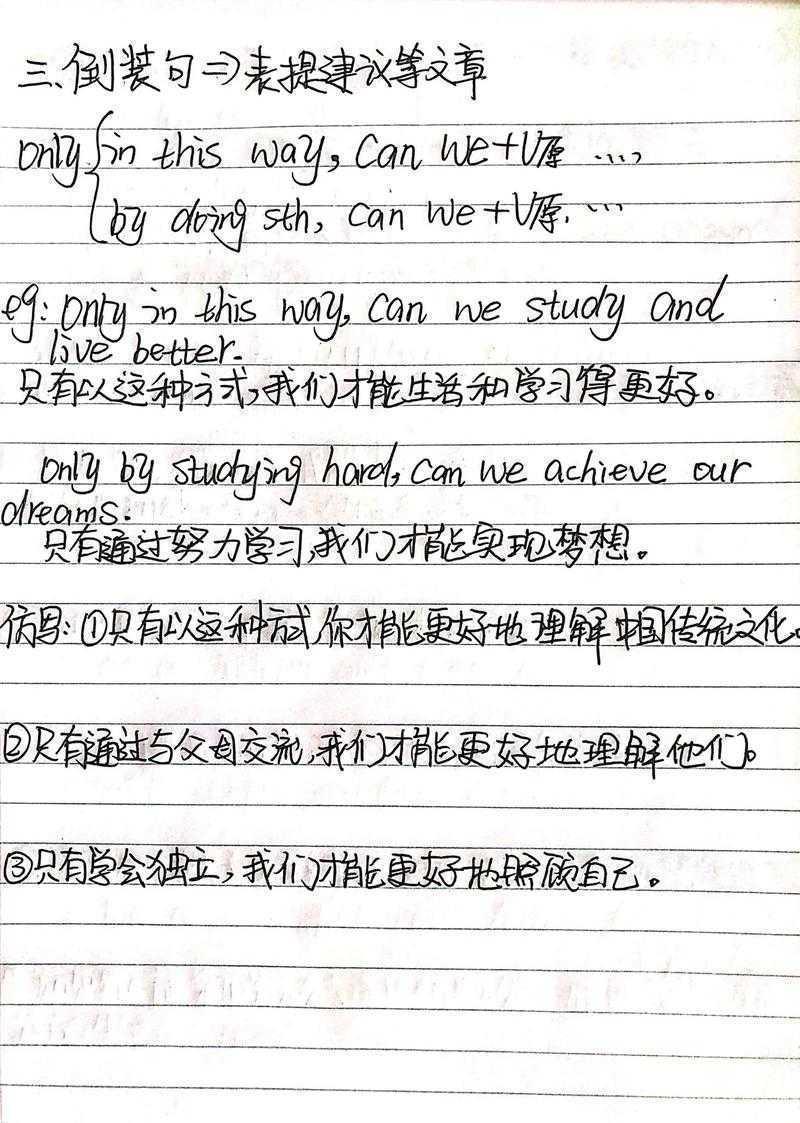 三、倒装句⇒表提建议等文章
only{in this way, can we+V原 ....,
by doing sth, can we+V原. ...
eg: only in this way, can we study and
live better.
只有以这种方式,我们才能生活和学习得更好。
only by studying hard, can we achieve our
dreams.
只有通过努力学习,我们才能实现梦想。
仿写:①只有以这种方式,你才能更好地理解中国传统文化。
②只有通过与父母交流,我们才能更好地理解他们。
③只有学会独立,我们才能更好地照顾自己。